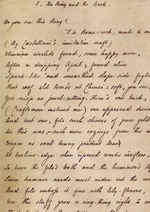 1. The Ring and the Book.
Do you see this Ring?
'Tis Rome-work, made to
(By Castellani's imitative craft)
Etrurian circlets found, some happy morn,
After a dropping April; found alive
Spark-like 'mid unearthed slope-side fig
That roof old tombs at Chiusi: soft, you
Yet crisp as jewel-cutting. There's one trick,
(Craftsmen instruct me) one approved
And but one, fits such slivers of pure gold
As this was, such mere oozings from the
Virgin as oval tawny pendent tear
At beehive-edge when ripened combs
To bear the file's tooth and the hammer's
Since hammer needs must widen out the
And file emboss it fine with lily-flowers,
Ere the stuff grow a ring-thing right to